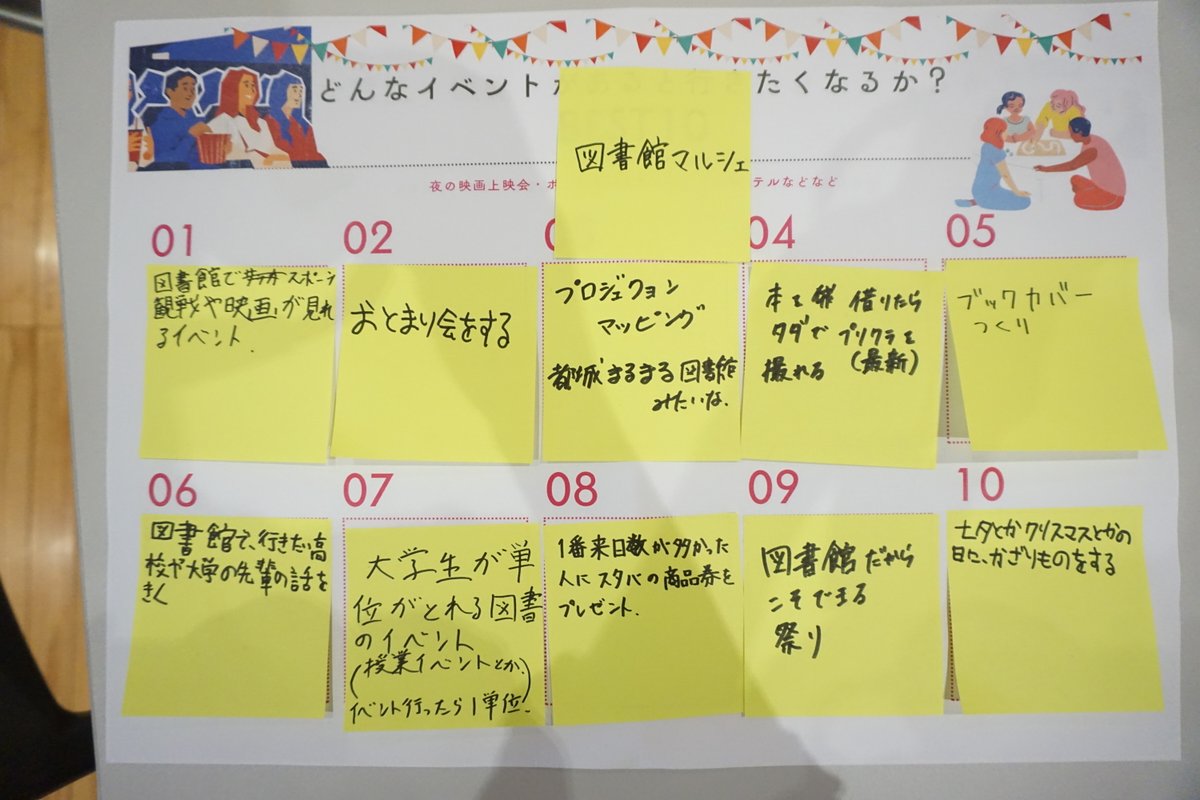 どんなイベントが
たくなるか？
図書館マルシェ
夜の映画上映会・ホ
テルなどなど
01
02
04
05
図書館でスポーツ
観戦や映画が見れ
るイベント.
おとまり会をする
プロジェクョン
マッピング
都城まるまる図書館
みたいな.
本を 借りたら
タダで プリクラを
撮れる (最新)
ブックカバー
つくり
06
07
08
09
10
図書館で、行きたい高
校や大学の先輩の話を
きく
大学生が単
位がとれる図書
のイベント
(授業イベントとか.
イベント行ったら1単位.)
1番来日数が多かった
人にスタバの商品券を
プレゼント.
図書館だから
こそできる
祭り
七夕とかクリスマスとかの
日に、かざりものをする